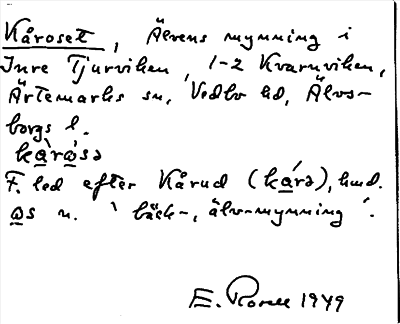 Kåroset, Älvens mynning i
Inre Tjurviken, 1-2 Kvarnviken,
Ärtemarks sn, Vedbo hd, Älvs-
borgs l.
kàrὼsə
F. led efter Kårud (kárə), hmd.
ωs n. 'bäck-, älv-mynning'.
E. Rosell 1949